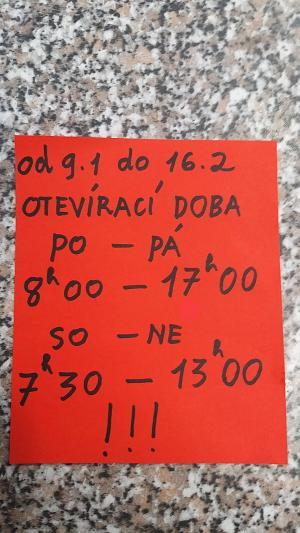 od 9.1 do 16.2
OTEVÍRACÍ DOBA
PO – PÁ
8h00 – 17h00
SO – NE
7h30 – 13h00
!!!